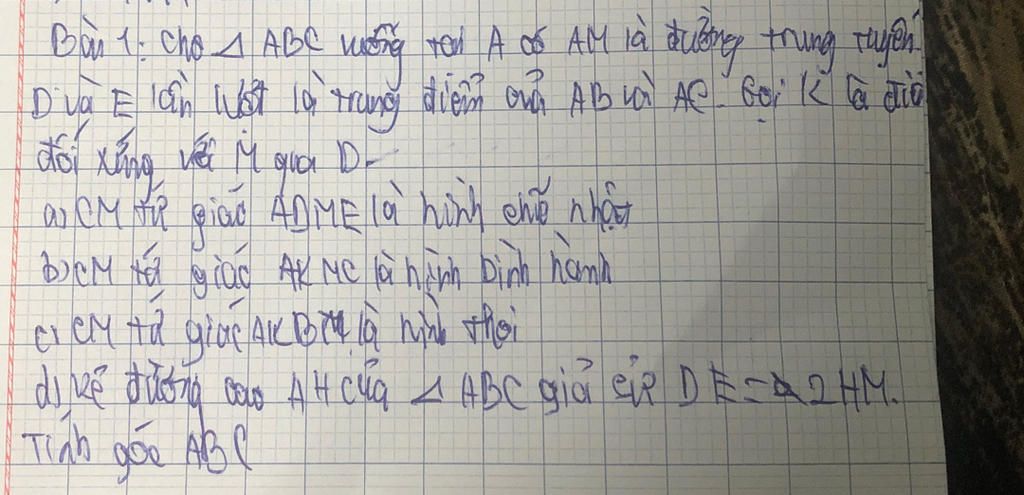 Bài 1: Cho ⊿ ABC vuông tại A có AM là đường trung tuyến.
D và E lần lượt là trung điểm của AB và AC. Gọi K là điể
đối xứng với M qua D.
a) CM tứ giác ADME là hình chữ nhật
b) CM tứ giác AKMC là hình bình hành
c) CM tứ giác AKBM là hình thoi
d) Vẽ đường cao AH của ⊿ ABC giả sử DE = 2HM.
Tính góc ABC